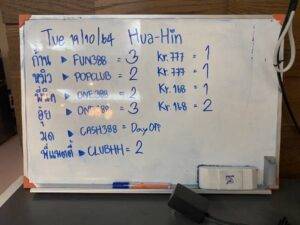 Tue 19/10/64 Hua-Hin
ก้าน ▸ FUN388 = 3 Kr.777 = 1
หมิว ▸ POPCLUB = 2 Kr.777 = 1
▸ ONE388 = 2 Kr.168 = 1
อุ้ย ▸ = 3 Kr.168 = 2
มด ▸ CASH388 = Day OFF
▸ CLUBHH = 2